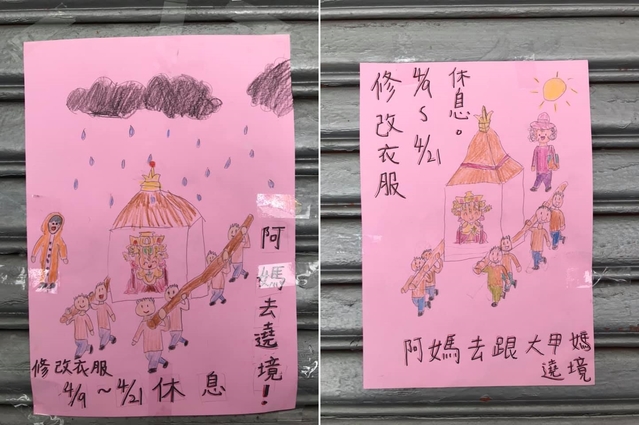 阿媽去遶境！
修改衣服
4/9～4/21休息
休息。
4/9～4/21
修改衣服
阿媽去跟大甲媽
遶境